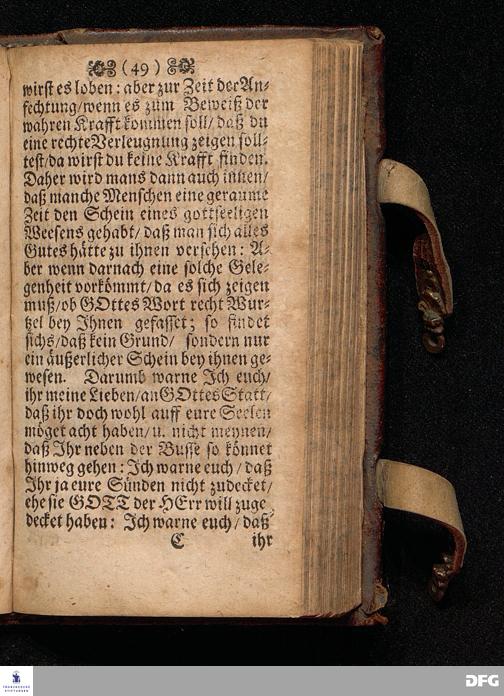 (49)
wirst es loben: aber zur Zeit der An-
fechtung/wenn es zum Beweiß der
wahren Krafft kommen soll/ daß du
eine rechte Verleugnung zeigen soll-
test/da wirst du keine Krafft finden.
Daher wird mans dann auch innen/
daß manche Menschen eine geraume
Zeit den Schein eines gottseeligen
Weesens gehabt/ daß man sich alles
Gutes hätte zu ihnen versehen: A-
ber wenn darnach eine solche Gele-
genheit vorkömmt/da es sich zeigen
muß/ob GOttes Wort recht Wur-
tzel bey Ihnen gefasset; so findet
sichs/daß kein Grund/ sondern nur
ein äußerlicher Schein bey ihnen ge-
wesen. Darumb warne Ich euch/
ihr meine Lieben/an GOttes Statt/
daß ihr doch wohl auff eure Seelen
möget acht haben/u. nicht meynen/
daß Ihr neben der Busse so könnet
hinweg gehen: Ich warne euch/ daß
Ihr ja eure Sünden nicht zudecket/
ehe sie GOTT der HErr will zuge
decket haben: Ich warne euch/ daß
C ihr
FRANCKESCHE STIFTUNGEN
DFG